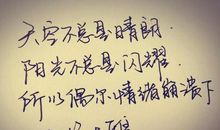 天空不总是晴朗.
阳光不总是闪耀.
所以偶尔情绪崩溃下